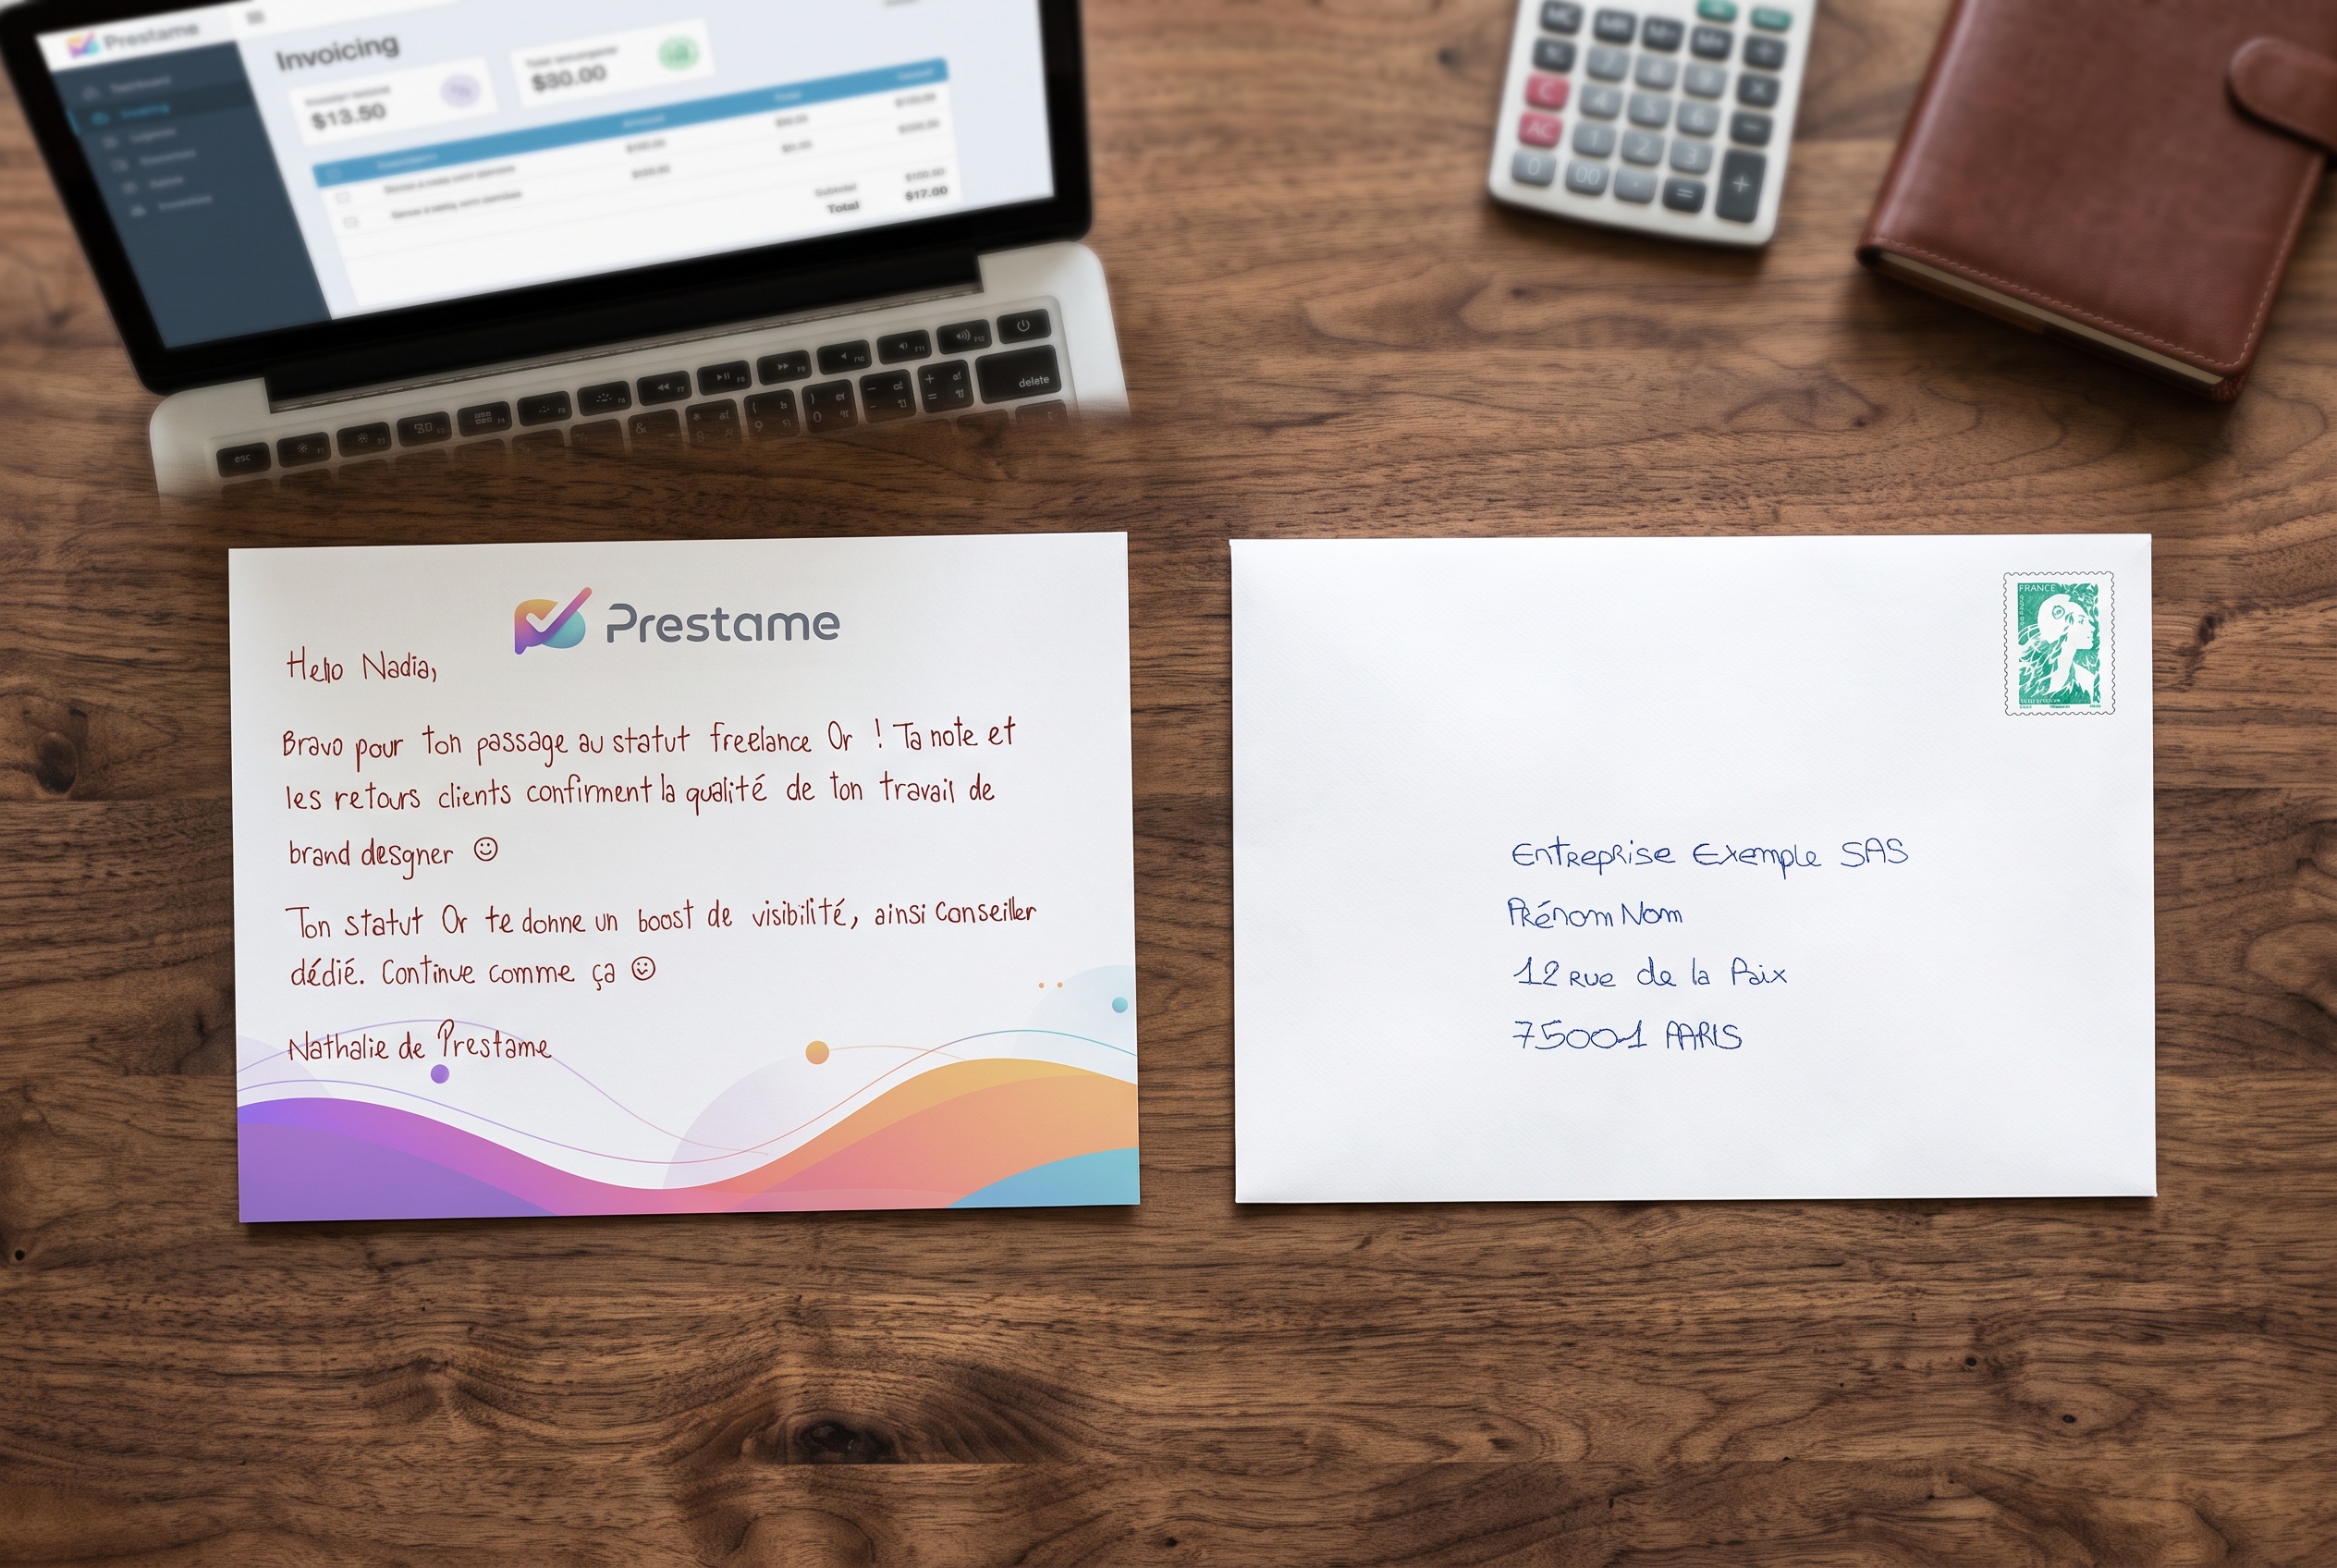 Prestame
Invoicing
$13.50
$30.00
Invoicing
Subtotal
Total $17.00
MC
C
AC
0 00 . = +
1 2 3
esc
delete
Prestame
Hello Nadia,
Bravo pour ton passage au statut freelance Or ! Ta note et
les retours clients confirment la qualité de ton travail de
brand desgner ☺
Ton statut Or te donne un boost de visibilité, ainsi Conseiller
dédié. Continue comme ça ☺
Nathalie de Prestame
FRANCE
Entreprise Exemple SAS
Prénom Nom
12 rue de la Paix
75001 PARIS